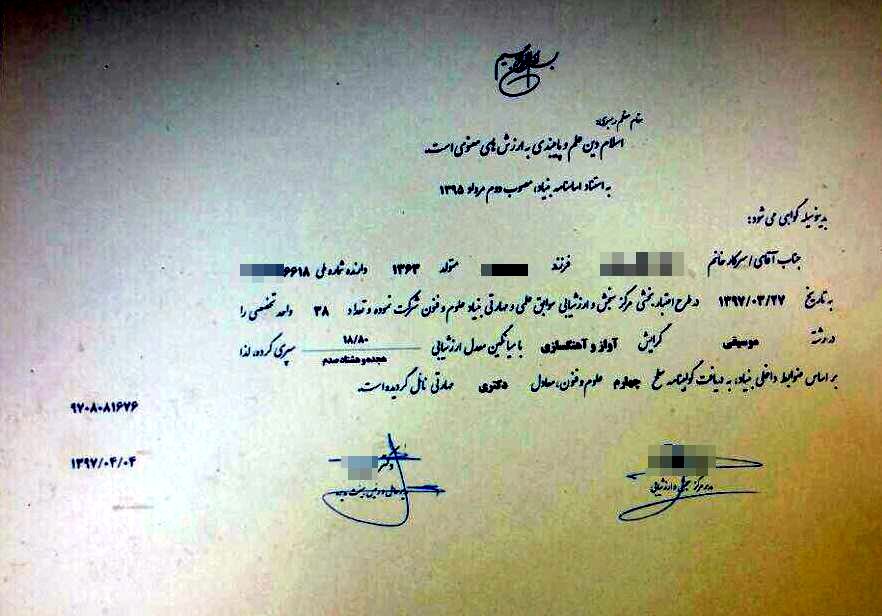 مقام معظم رهبری:
اسلام دین علم و پایبندی به ارزش های معنوی است.
به استناد اساسنامه بنیاد، مصوب دوم مرداد ۱۳۹۵
بدینوسیله گواهی می شود:
جناب آقای/سرکار خانم فرزند متولد ۱۳۶۳ دارنده شماره ملی ۶۶۱۸
به تاریخ ۱۳۹۷/۰۳/۲۷ در طرح اعتبار بخشی مرکز سنجش و ارزشیابی سوابق علمی و مهارتی بنیاد علوم و فنون شرکت نموده و تعداد ۳۸ واحد تخصصی را
در رشته موسیقی گرایش آواز و آهنگسازی با میانگین معدل ارزشیابی ۱۸/۸۰ هجده و هشتاد صدم سپری کرده، لذا
بر اساس ضوابط داخلی بنیاد، به دریافت گواهینامه سطح چهارم علوم و فنون، معادل دکتری مهارتی نائل گردیده است.
۹۷۰۸۰۸۱۶۷۶
۱۳۹۷/۰۴/۰۴
دکتر
مدیر مرکز سنجش و ارزشیابی